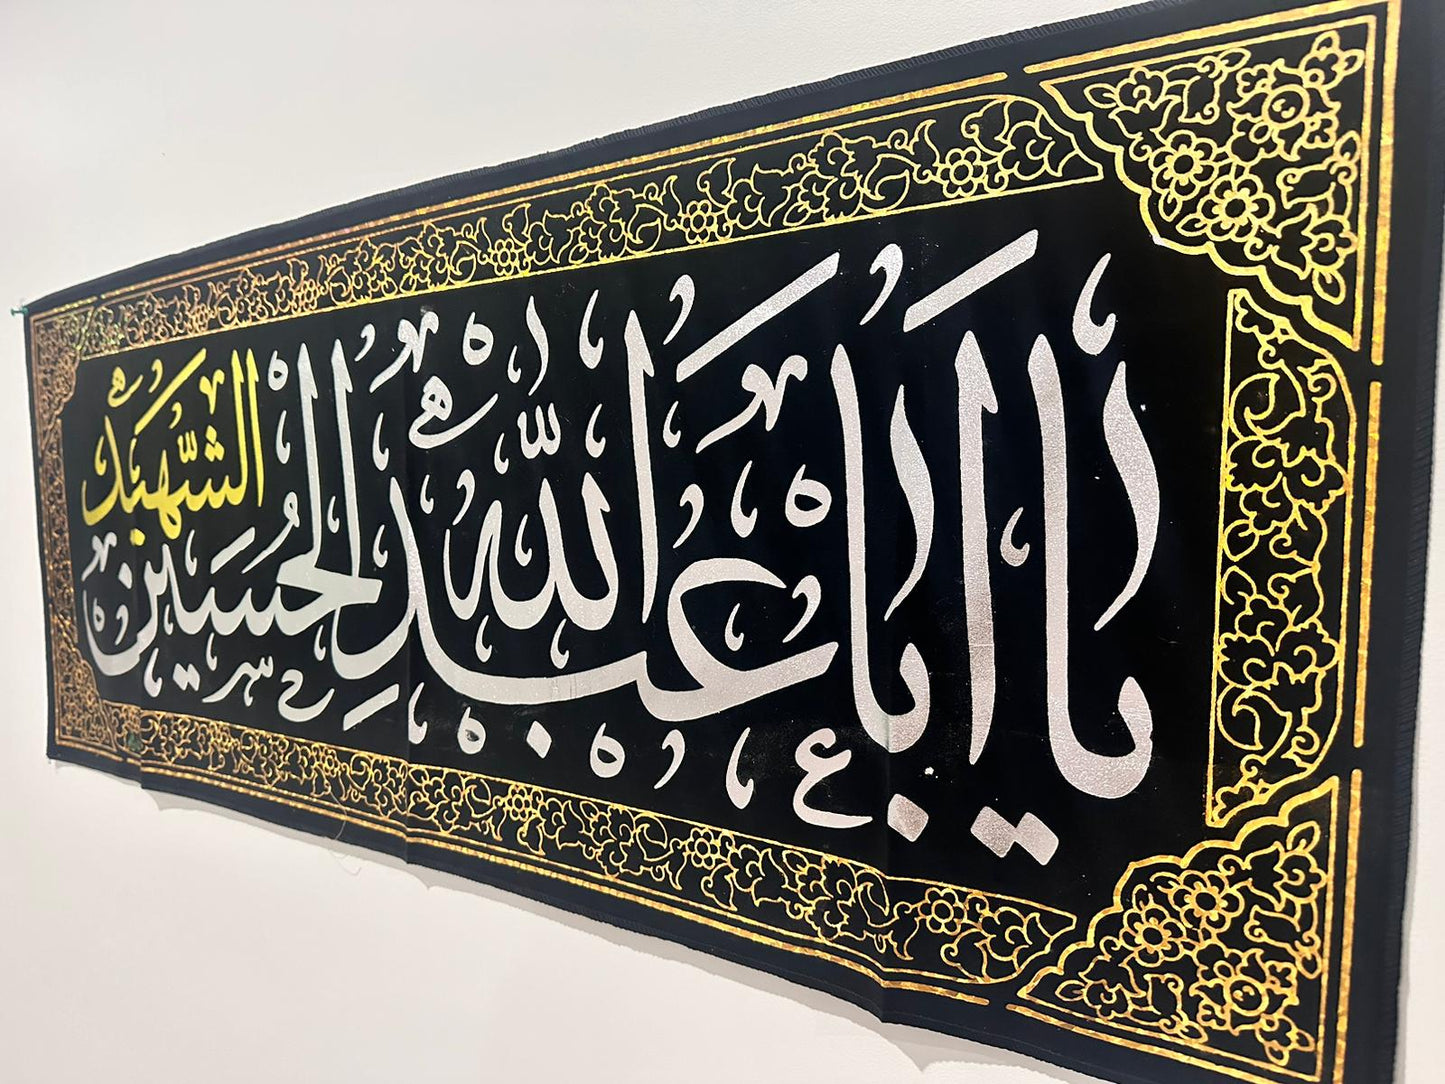 يا اَبا عَبدِ اللّٰهِ الحُسَين الشَّهيد